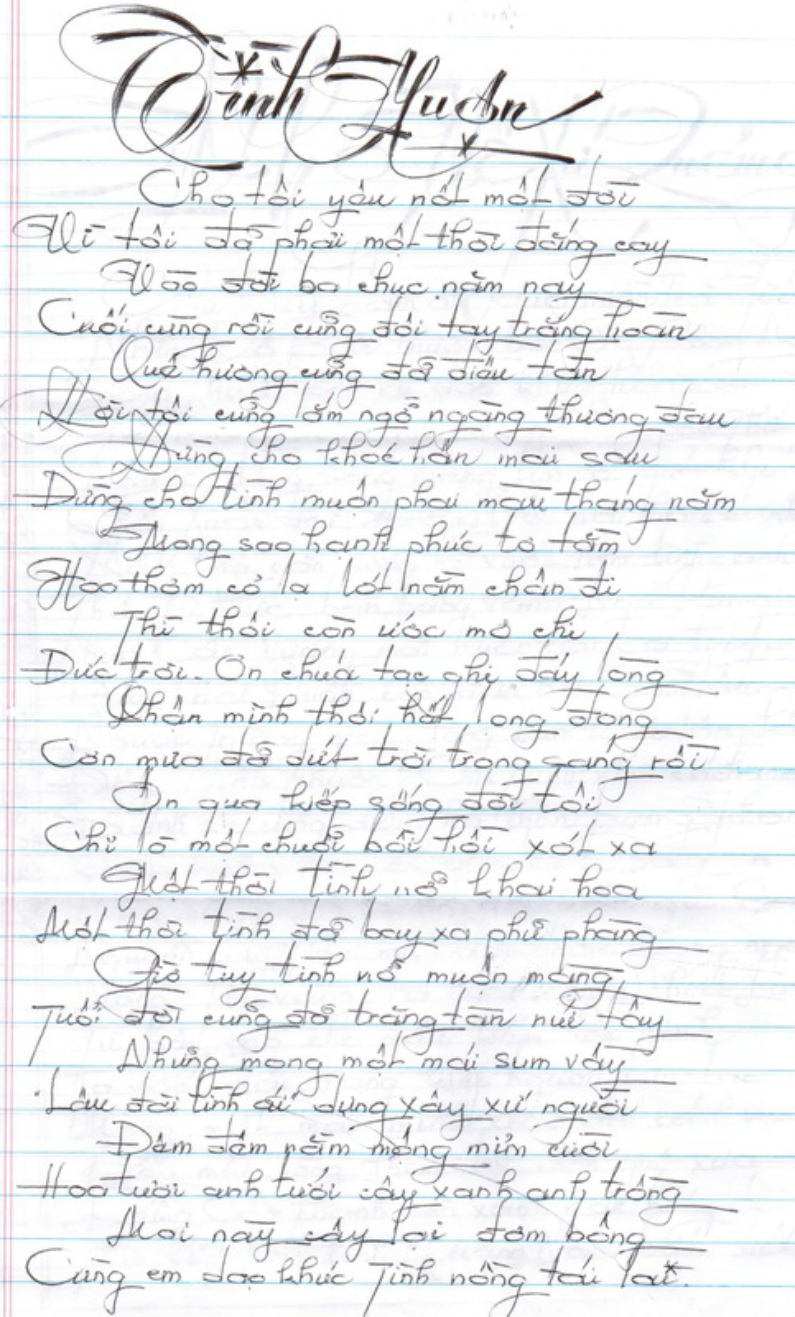 Tình Muộn
Cho tôi yêu nốt một đời
Vì tôi đã phải một thời đắng cay
Vào đời ba chục năm nay
Cuối cùng rồi cũng đôi tay trắng hoàn
Quê hương cũng đã điêu tàn
Đời tôi cũng lắm ngỡ ngàng thương đau
Đừng cho khóc hận mai sau
Đừng cho tình muộn phai màu tháng năm
Mong sao hạnh phúc tơ tằm
Hoa thơm cỏ lạ lót nằm chân đi
Thì thôi còn ước mơ chi
Đức trời. Ơn chúa tạc ghi đáy lòng
Phận mình thôi hết long đong
Cơn mưa đã dứt trời trong sáng rồi
Ôn qua kiếp sống đời tôi
Chỉ là một chuỗi bồi hồi xót xa
Một thời tình nở khai hoa
Một thời tình đã bay xa phũ phàng
Giờ tuy tình nở muộn màng
Tuổi đời cũng đã trăng tàn núi tây
Nhưng mong một mái sum vầy
Lâu đài tình ái dựng xây xứ người
Đêm đêm nằm mộng mỉm cười
Hoa tươi anh tưới cây xanh anh trồng
Mai này cây lại đơm bông
Cùng em dạo khúc Tình nồng tái lai.